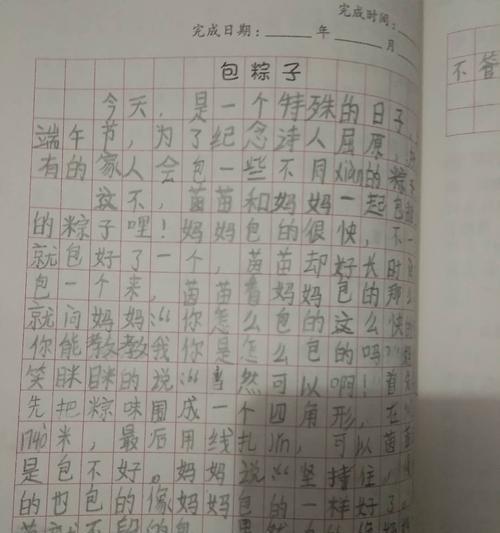 完成时间：
完成日期：______年______月
包粽子
不管
今天，是一个特殊的日子，
端午节，为了纪念诗人屈原，
有的家人会包一些不同xiàn的粽
这不，茵苗和妈妈一起包
的粽子哩！妈妈包的很快，不一
就包好了一个，茵苗却好长时
包一个来，茵苗看妈妈包的那么
就问妈妈：“你怎么包的这么快
你能教教我你是怎么包的吗？”
笑眯眯的说：“当然可以啊！首
先把粽味围成一个四角形，在
米，最后用线扎jǐn，可以茵苗
是包不好。妈妈说：“坚持住，
的也包的像妈妈包的一样好了。